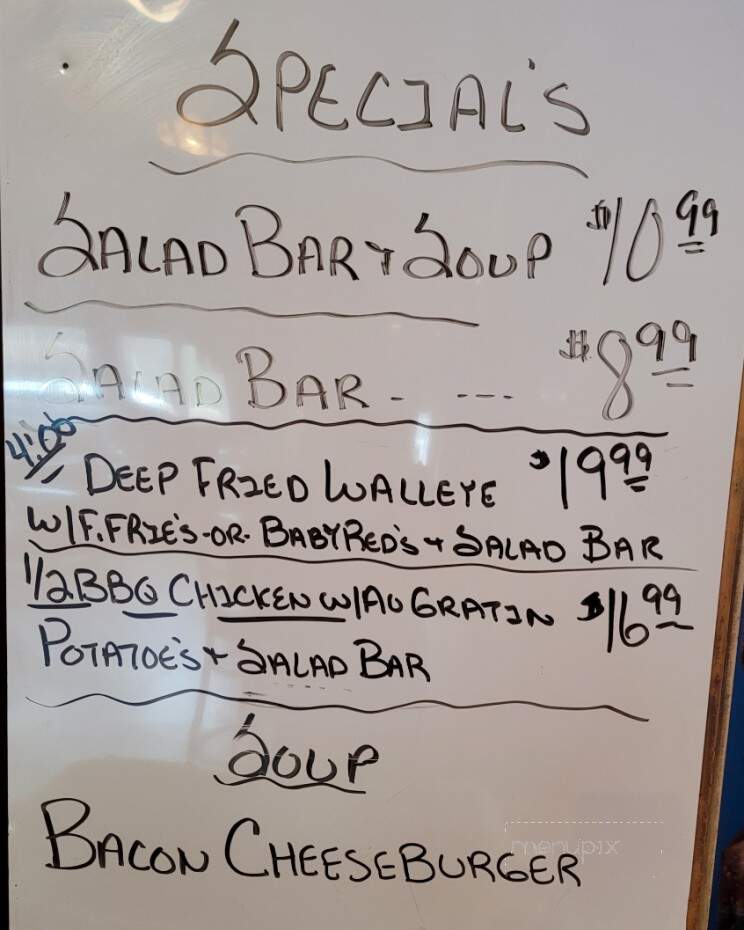 SPECIAL'S
SALAD BAR + SOUP $10.99
SALAD BAR - --- $8.99
4:00
DEEP FRIED WALLEYE $19.99
W/F.FRIE'S -OR- BABYRED'S + SALAD BAR
1/2 BBQ CHICKEN W/AU GRATIN $16.99
POTATOE'S + SALAD BAR
SOUP
BACON CHEESEBURGER
menupix